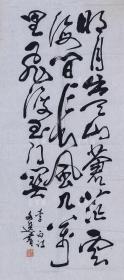 明月出天山蒼茫雲
海間長風幾萬
里吹度玉門關
李白詩